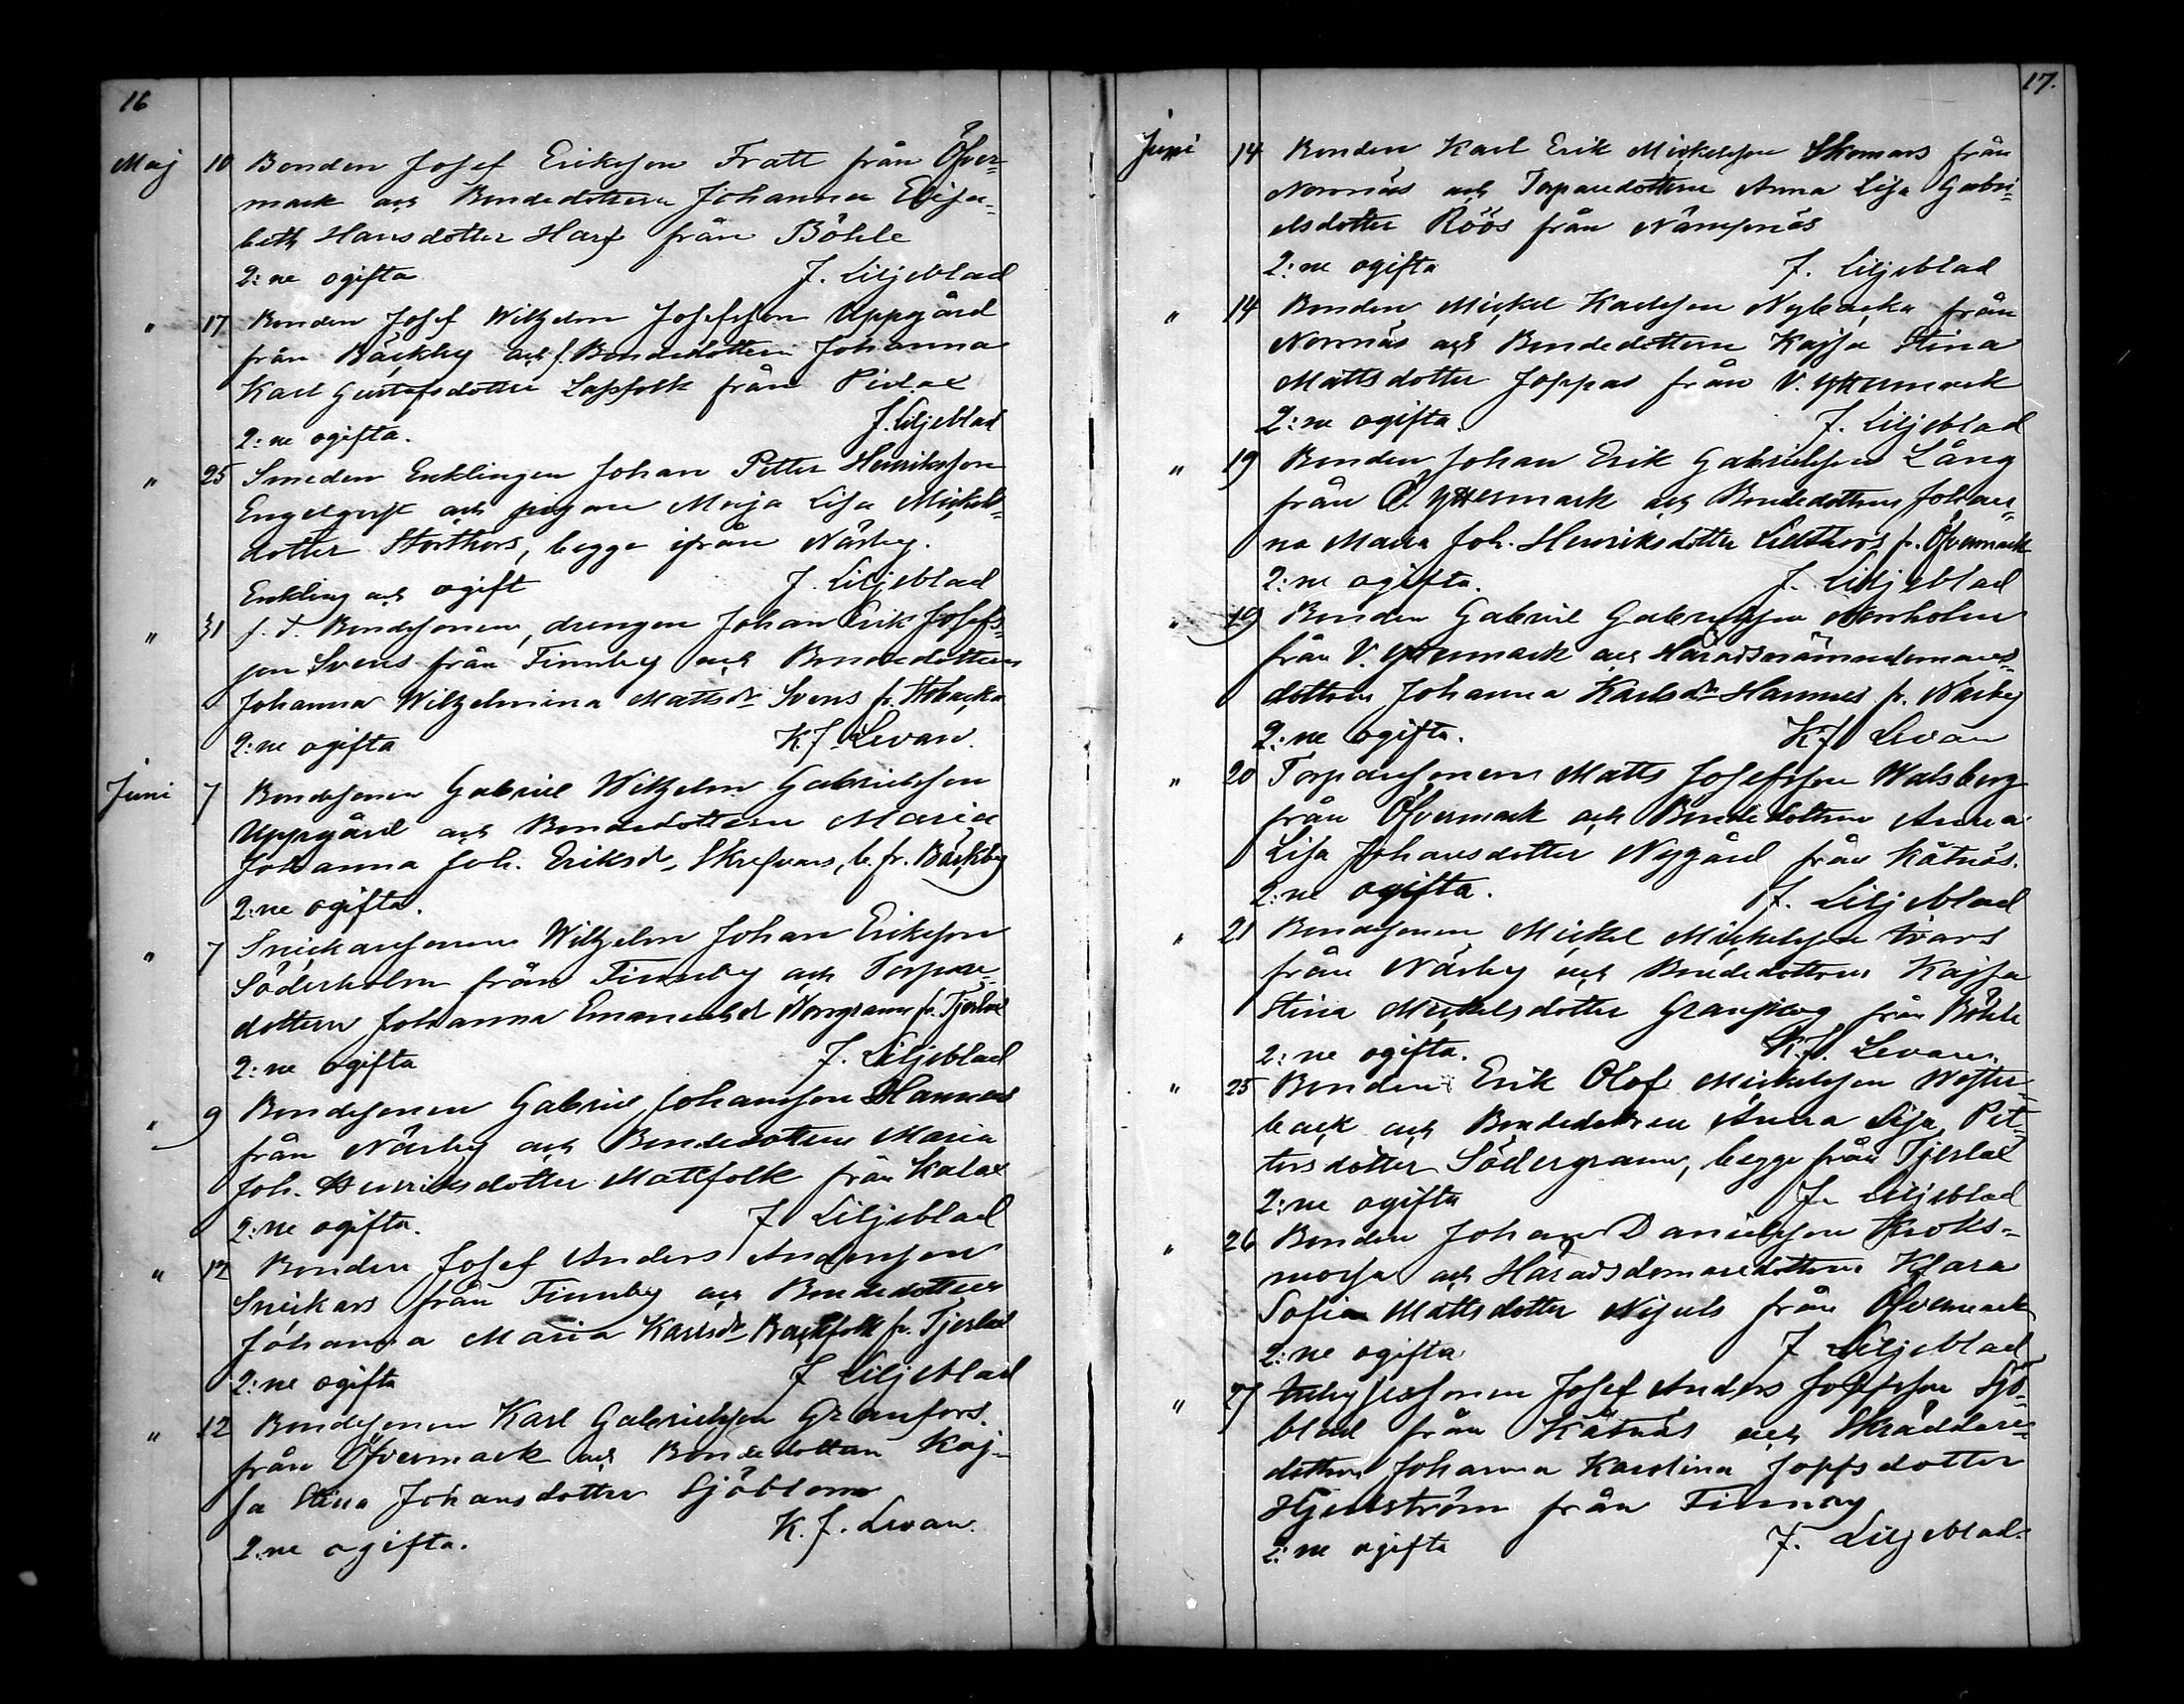 16
Maj 10 Bonden Josef Eriksson Fratt från Öfver-
mark och Bondedottern Johanna Elisa-
beth Hansdotter Harf från Böhle
2:ne ogifta J. Liljeblad
" 17 Bonden Josef Wilhelm Josefsson Uppgård
från Bäckby och f. Bondedottern Johanna
Karl Gustafsdotter Lassfolk från Pielax
2:ne ogifta. J. Liljeblad
" 25 Smeden Enklingen Johan Petter Henriksson
Engelqvist och pigan Maja Lisa Mickels-
dotter Storthors, begge ifrån Närby.
Enkling och ogift J. Liljeblad
" 31 f. d. Bondesonen, drengen Johan Erik Josefs-
son Svens från Finnby och Bondedottern
Johanna Wilhelmina Mattsdr Svens fr.
2:ne ogifta K. J. Levan.
Juni 7 Bondesonen Gabriel Wilhelm Gabrielsson
Uppgård och Bondedottern Maria
Johanna Joh. Eriksdr Skrefvars, b. fr. Bäckby
2:ne ogifta.
" 7 Snickaresonen Wilhelm Johan Eriksson
Söderholm från Finnby och Torpare-
dottern Johanna Emanuelsdr Norrgrann fr. Tjerlax
2:ne ogifta J. Liljeblad
" 9 Bondesonen Gabriel Johansson Hannus
från Närby och Bondedottern Maria
Joh. Henriksdotter Mattfolk från Kalax
2:ne ogifta. J. Liljeblad
" 12 Bonden Josef Anders Andersson
Snickars från Finnby och Bondedottern
Johanna Maria Karlsdr Backfolk fr. Tjerlax
2:ne ogifta J Liljeblad
" 12 Bondesonen Karl Gabrielsson Granfors.
från Öfvermark och Bondedottern Kaj-
sa Stina Johansdotter Sjöblom
2:ne ogifta. K. J. Levan.
17.
Juni 14 Bonden Karl Erik Mickelsson Skomars från
Norrnäs och Torparedottern Anna Lisa Gabri-
elsdotter Röös från Nämpnäs
2:ne ogifta J. Liljeblad
" 14 Bonden Mickel Karlsson Nybacka från
Norrnäs och Bondedottern Kajsa Stina
Mattsdotter Joppas från V. Yttermark
2:ne ogifta. J. Liljeblad
" 19 Bonden Johan Erik Gabrielsson Lång
från Ö. Yttermark och Bondedottern Johan-
na Maria Joh. Henriksdotter Lillthors fr. Öfvermark
2:ne ogifta. J. Liljeblad
" 19 Bonden Gabriel Gabrielsson Norrholm
från V. Yttermark och Häradsnämndemans-
dottern Johanna Karlsdr Hannus fr. Närby
2:ne ogifta. K. J. Levan
" 20 Torparesonen Matts Josefsson Walsberg
från Öfvermark och Bondedottern Anna
Lisa Johansdotter Nygård från Kåtnäs.
2:ne ogifta. J. Liljeblad
" 21 Bondesonen Mickel Mickelsson Ivars
från Närby och Bondedottern Kajsa
Stina Mickelsdotter Granskog från Böhle
2:ne ogifta. K. J. Levan.
" 25 Bonden Erik Olof Mickelsson Wester-
back och Bondedottren Anna Lisa Pet-
tersdotter Södergrann, begge från Tjerlax
2:ne ogifta J. Liljeblad
" 26 Bonden Johan Danielsson Kroks-
mossa och Häradsdomaredottern Klara
Sofia Mattsdotter Nijuls från Öfvermark
2:ne ogifta J Liljeblad
" 27 Inhyssesonen Josef Anders Josefsson Sjö-
blad från Kåtnäs och Skräddare-
dottern Johanna Karolina Joppsdotter
Hjertström från Finnby
2:ne ogifta J. Liljeblad.